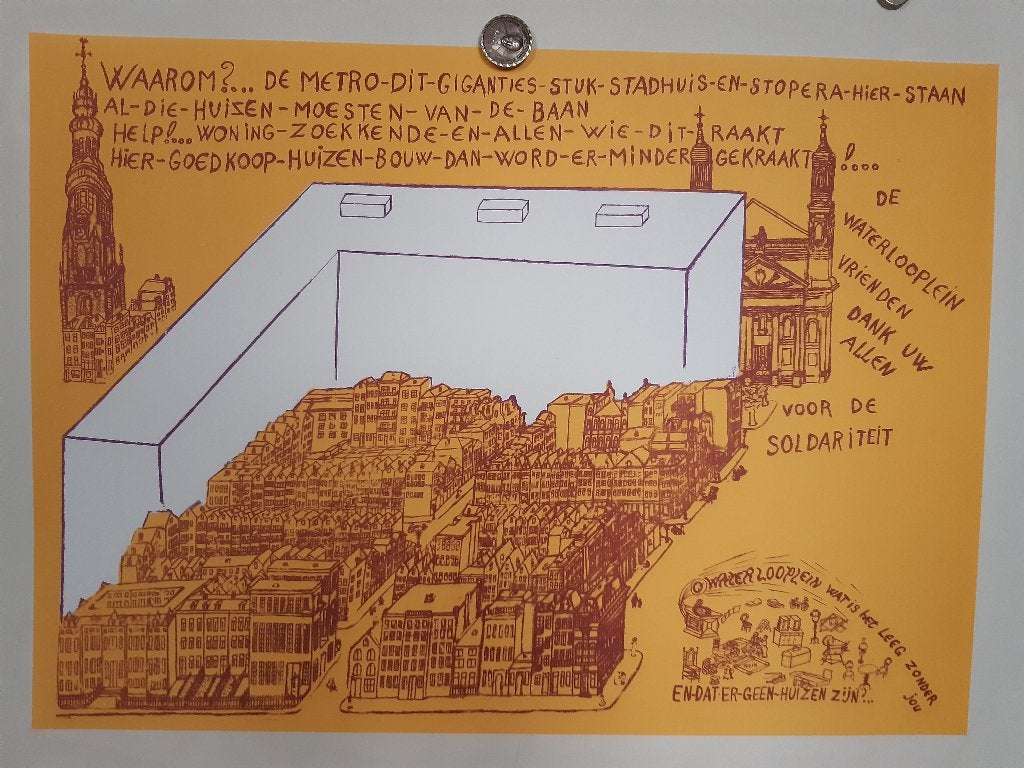 WAAROM?... DE METRO-DIT-GIGANTIES-STUK-STADHUIS-EN-STOPERA-HIER-STAAN
AL-DIE-HUIZEN-MOESTEN-VAN-DE-BAAN
HELP!...WONING-ZOEKKENDE-EN-ALLEN-WIE-DIT-RAAKT
HIER-GOEDKOOP-HUIZEN-BOUW-DAN-WORD-ER-MINDER GEKRAAKT!...
DE
WATERLOOPLEIN
VRIENDEN
DANK UW
ALLEN
VOOR DE
SOLDARITEIT
O WATERLOOPLEIN WAT IS HET LEEG ZONDER JOU
EN-DAT-ER-GEEN-HUIZEN ZIJN?...